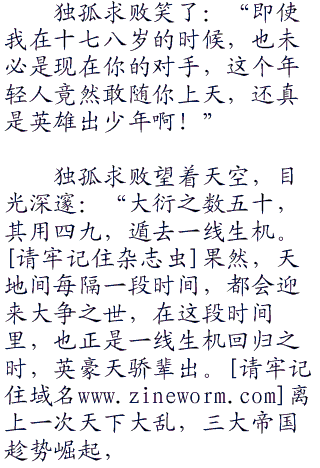 独孤求败笑了：“即使
我在十七八岁的时候，也未
必是现在你的对手，这个年
轻人竟然敢随你上天，还真
是英雄出少年啊！”
独孤求败望着天空，目
光深邃：“大衍之数五十，
其用四九，遁去一线生机。
[请牢记住杂志虫]果然，天
地间每隔一段时间，都会迎
来大争之世，在这段时间
里，也正是一线生机回归之
时，英豪天骄辈出。[请牢记
住域名www.zineworm.com]离
上一次天下大乱，三大帝国
趁势崛起，